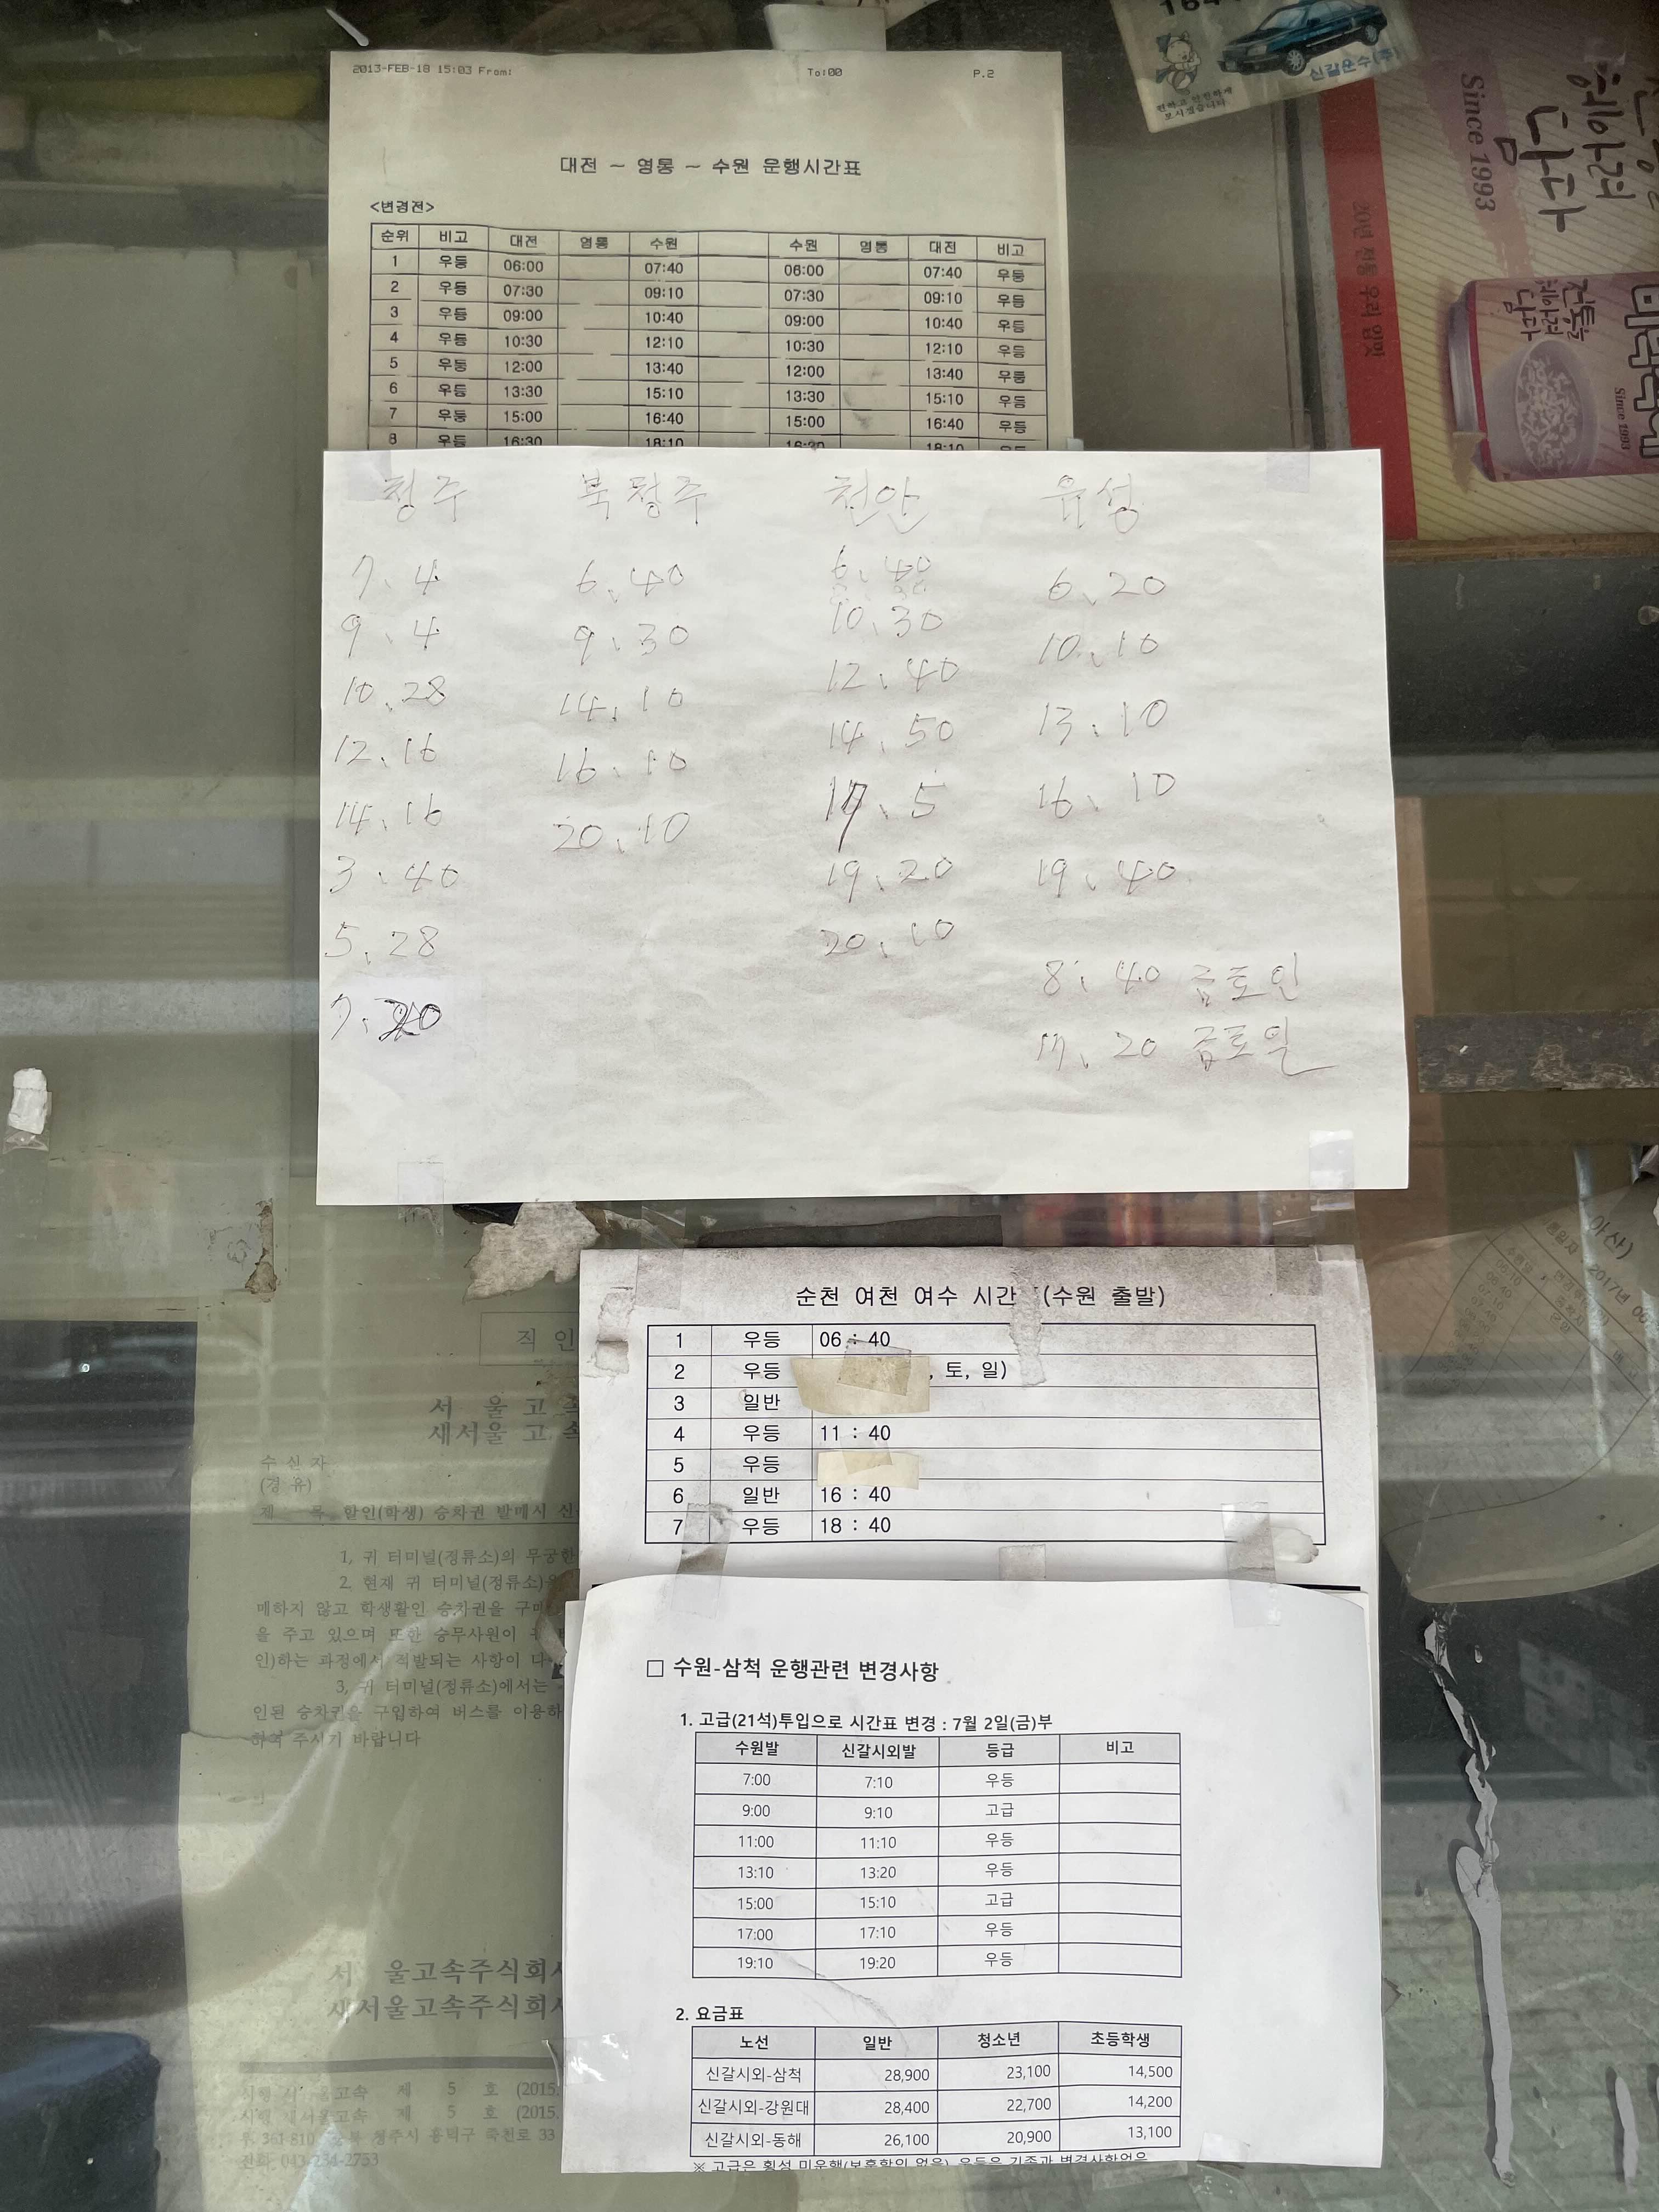 2013-FEB-18 15:03 From: To:00 P.2
대전 ~ 영통 ~ 수원 운행시간표
<변경전>
순위 비고 대전 영통 수원 수원 영통 대전 비고
1 우등 06:00 07:40 06:00 07:40 우등
2 우등 07:30 09:10 07:30 09:10 우등
3 우등 09:00 10:40 09:00 10:40 우등
4 우등 10:30 12:10 10:30 12:10 우등
5 우등 12:00 13:40 12:00 13:40 우등
6 우등 13:30 15:10 13:30 15:10 우등
7 우등 15:00 16:40 15:00 16:40 우등
8 우등 16:30 18:10 16:30 18:10 우등
신갈운수(주)
편하고 안전하게
모시겠습니다
Since 1993
20년 전통 우리 입맛
Since 1993
청주 북청주 천안 유성
7.4 6.40 6.40 6.20
9.4 9.30 10.30 10.10
10.28 14.10 12.40 13.10
12.16 16.10 14.50 16.10
14.16 20.10 17.5 19.40
3.40 19.20
5.28 20.10
7.20
8:40 금토일
17.20 금토일
순천 여천 여수 시간 (수원 출발)
1 우등 06 : 40
2 우등 , 토, 일)
3 일반
4 우등 11 : 40
5 우등
6 일반 16 : 40
7 우등 18 : 40
아산)
2017년
직 인
서 울 고 속
새서울 고 속
수 신 자
(경 유)
제 목 할인(학생) 승차권 발매시
1, 귀 터미널(정류소)의 무궁한
2. 현재 귀 터미널(정류소)
매하지 않고 학생할인 승차권을 구매
을 주고 있으며 또한 승무사원이
인)하는 과정에서 적발되는 사항이
3, 귀 터미널(정류소)에서는
인된 승차권을 구입하여 버스를 이용하
하여 주시기 바랍니다
서 울고속주식회사
새서울고속주식회사
시행 서 울고속 제 5 호 (2015.
시행 새서울고속 제 5 호 (2015.
우 361-810 충북 청주시 흥덕구 죽천로 33
전화 043-234-2753
□ 수원-삼척 운행관련 변경사항
1. 고급(21석)투입으로 시간표 변경 : 7월 2일(금)부
수원발 신갈시외발 등급 비고
7:00 7:10 우등
9:00 9:10 고급
11:00 11:10 우등
13:10 13:20 우등
15:00 15:10 고급
17:00 17:10 우등
19:10 19:20 우등
2. 요금표
노선 일반 청소년 초등학생
신갈시외-삼척 28,900 23,100 14,500
신갈시외-강원대 28,400 22,700 14,200
신갈시외-동해 26,100 20,900 13,100
※ 고급은 횡성 미운행(보훈할인 없음) 우등은 기존과 변경사항없음